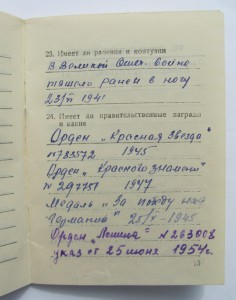 23. Имеет ли ранения и контузии
В Великой Отеч. войне
тяжело ранен в ногу
23/VI 1941
24. Имеет ли правительственные награды
и какие
Орден „Красная Звезда"
№ 783572 1945
Орден „Красного Знамени"
№ 297751 1947
Медаль „За победу над
Германией" 25/VI-1945
Орден „Ленина" № 263008
указ от 25 июня 1954г.